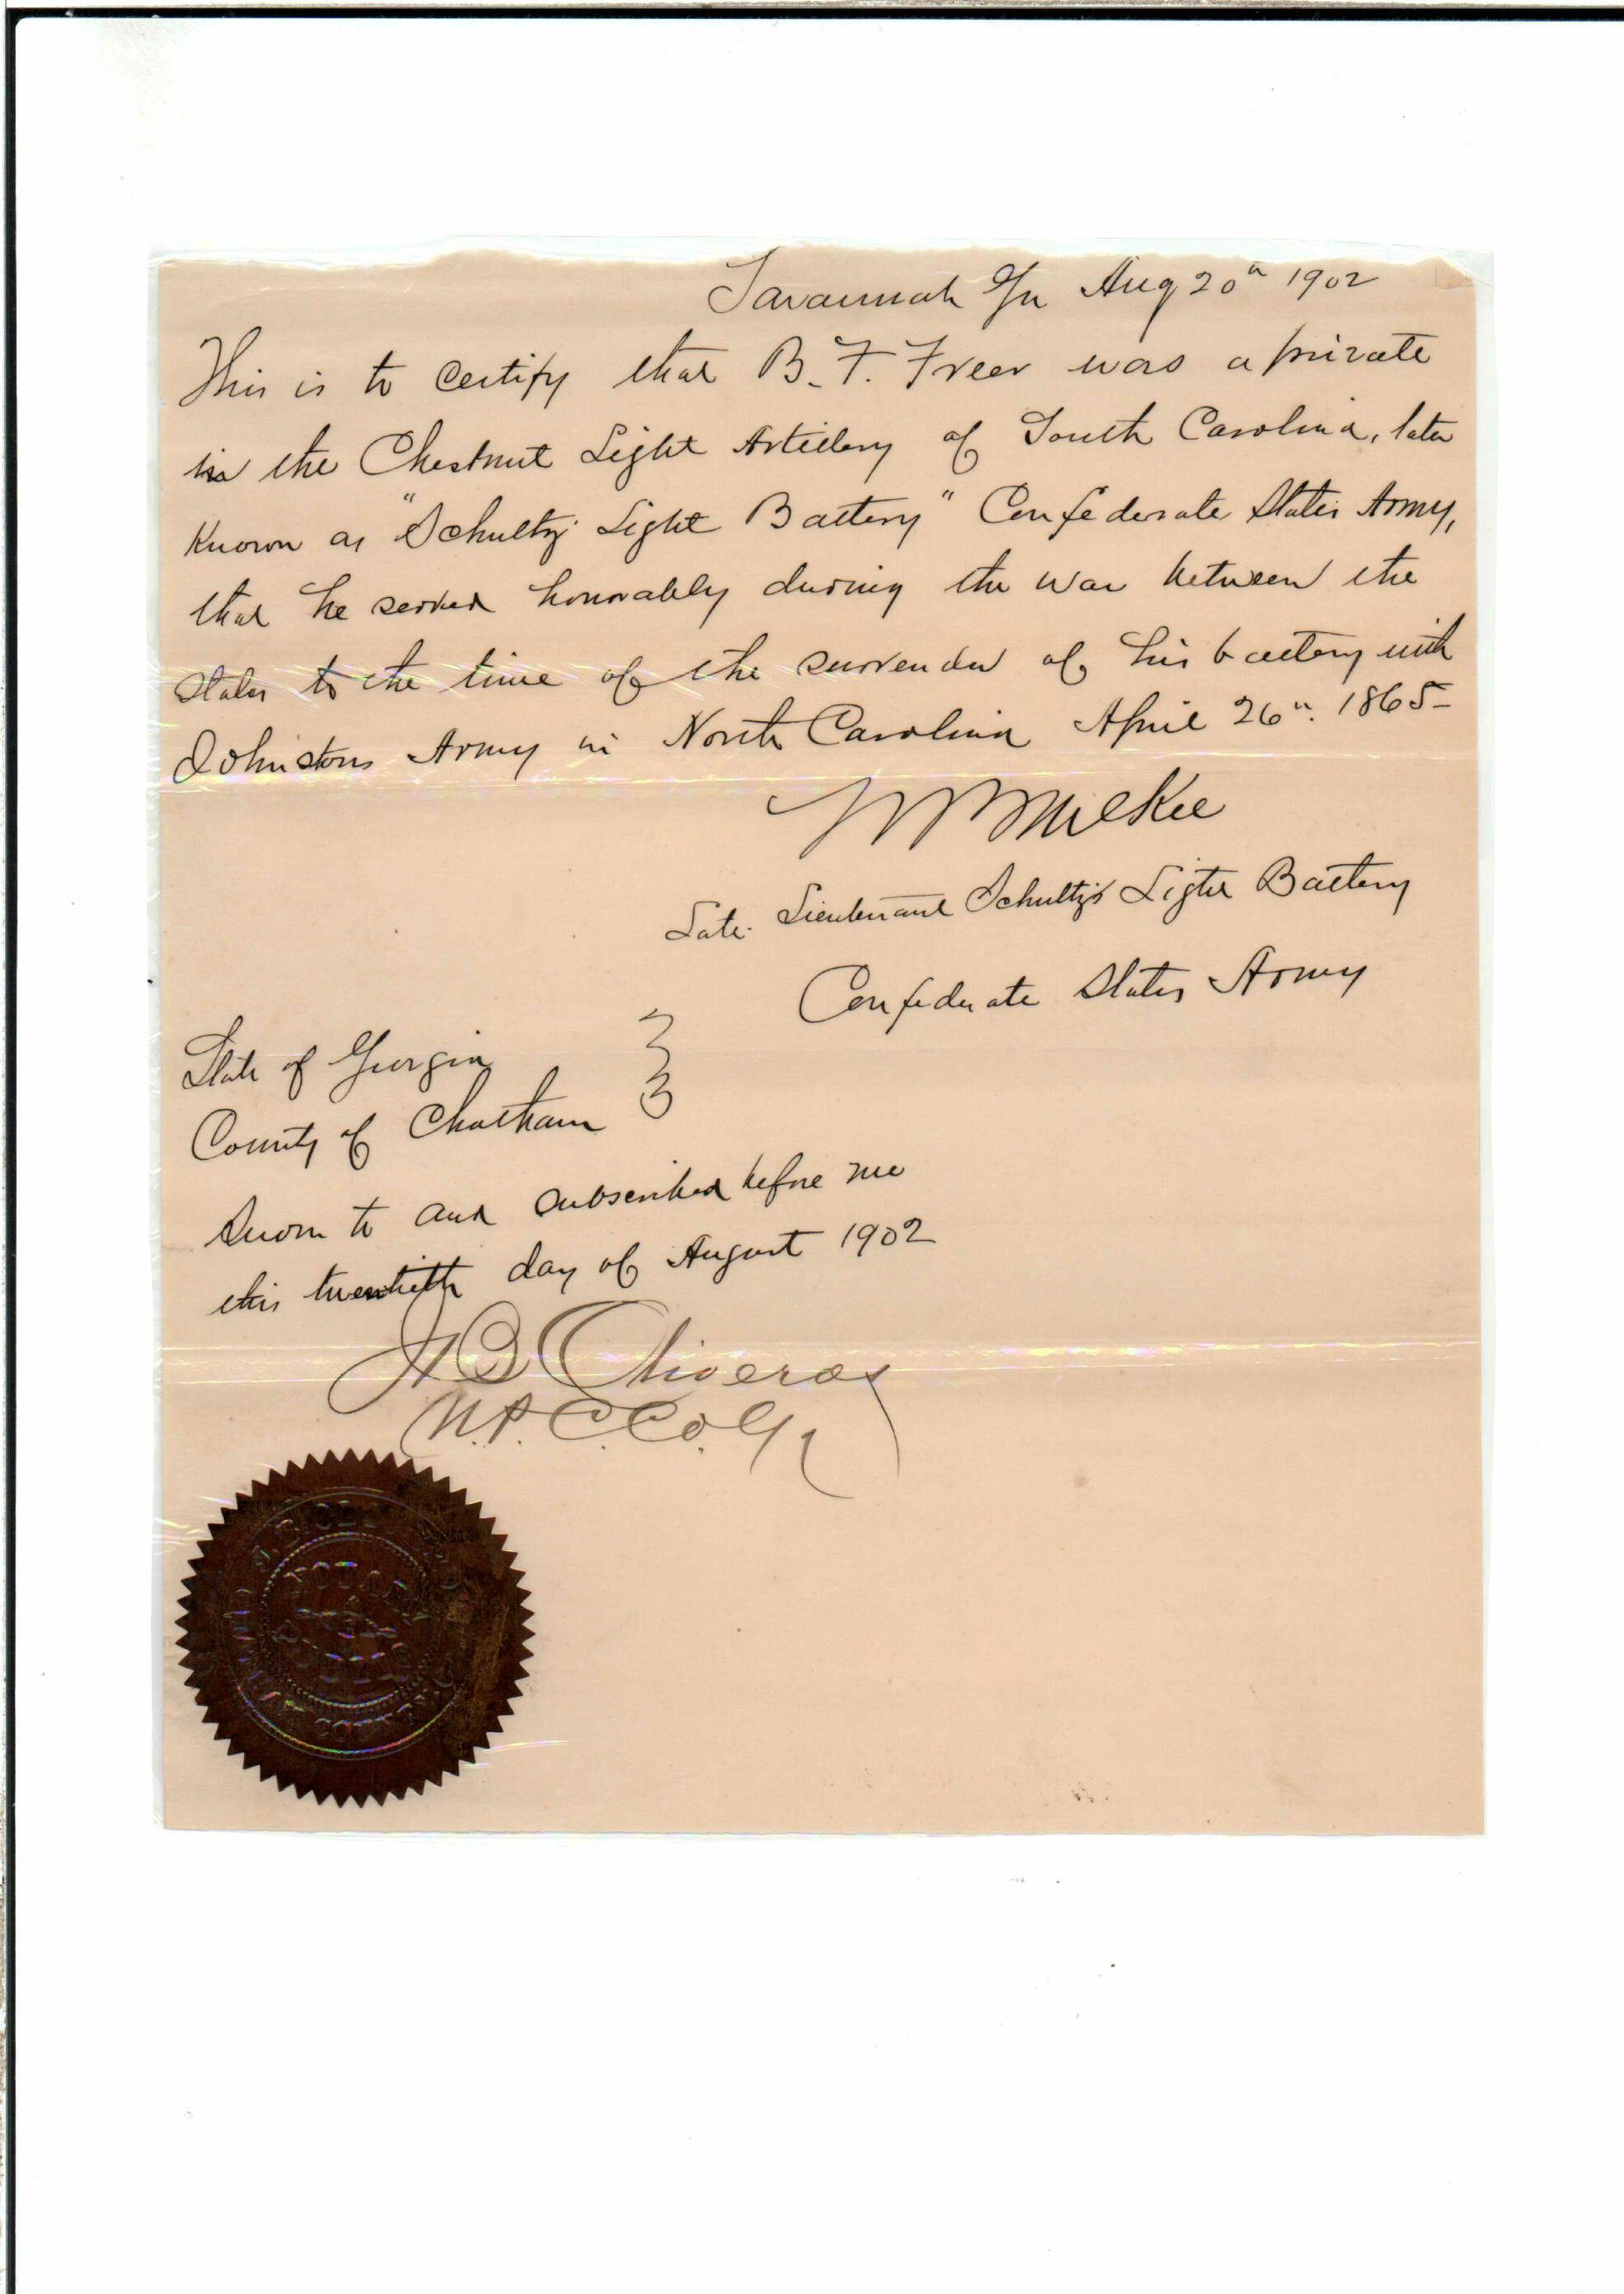 Savannah Ga Aug 20th 1902
This is to certify that B. F. Freer was a private
in the Chestnut Light Artillery of South Carolina, later
Known as "Schultz Light Battery" Confederate States Army,
that he served honorably during the war between the
states to the time of the surrender of his battery with
Johnstons Army in North Carolina April 26th. 1865-
McKee
Late Lieutenant Schultz's Light Battery
Confederate States Army
State of Georgia
County of Chatham
Sworn to and subscribed before me
this twentieth day of August 1902
Oliveros
N.P. C.Co. Ga